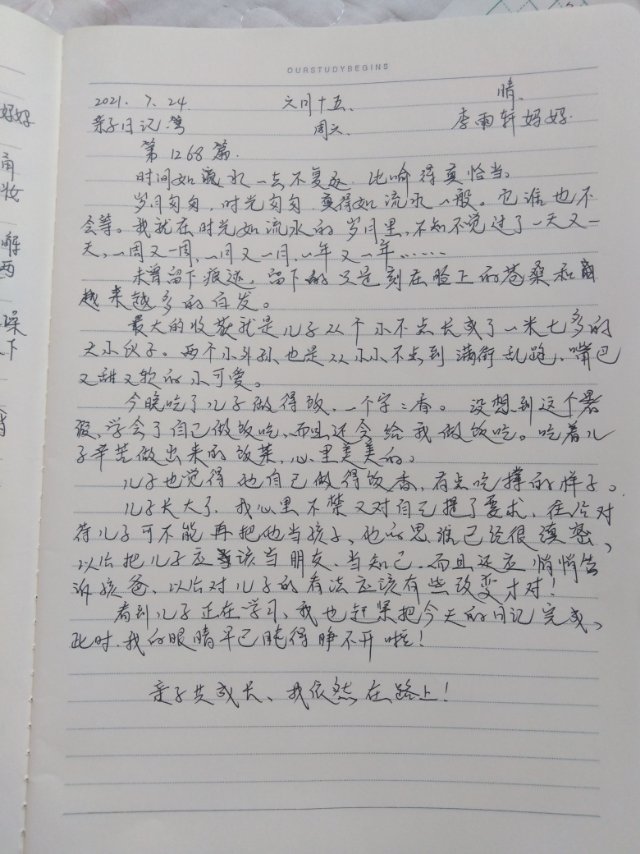 OURSTUDYBEGINS
2021. 7. 24 六月十五、 晴、
亲子日记第 周六、 李雨轩妈妈
第1268篇
时间如流水一去不复返 比喻得真恰当。
岁月匆匆，时光匆匆 变得如流水一般。它谁也不
会等。我就在时光如流水的岁月里，不知不觉过了一天又一
天，一周又一周，一月又一月，一年又一年……
未曾留下痕迹，留下的只是刻在脸上的苍桑和
越来越多的白发。
最大的收获就是儿子从个小不点长成了一米七多的
大小伙子。两个小外孙也是从小小不点到满街乱跑，嘴巴
又甜又软的小可爱。
今晚吃了儿子做得饭，一个字：香。没想到这个暑
假，学会了自己做饭吃，而且还会给我做饭吃。吃着儿
子辛苦做出来的饭菜，心里美美的。
儿子也觉得他自己做得饭香，有点吃撑的样子。
儿子长大了，我心里不禁又对自己提了要求，在后对
待儿子可不能再把他当孩子，他的思维已经很
以后把儿子应该当朋友、当知己，而且还应悄悄告
诉孩爸，以后对儿子的看法应该有些改变才对！
看到儿子正在学习，我也赶紧把今天的日记完成，
此时，我的眼睛早已肫得睁不开啦！
亲子共成长、我依然在路上！
好好
角
妆
解
西
躁
下